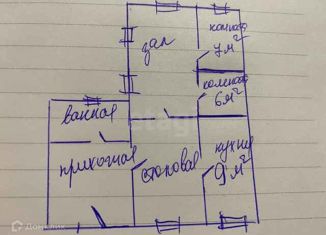 зал
комната
7 м²
комната
6 м²
ванная
прихожая
столовая
кухня
9 м²
etagi
Домклик